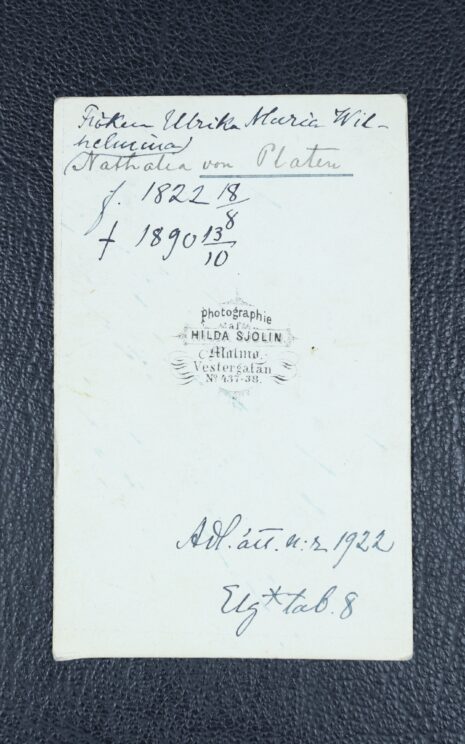 Fröken Ulrika Maria Wil-
helmina)
(Nathalia von Platen
f. 1822 18/8
† 1890 13/10
photographie
af
HILDA SJÖLIN
Malmö.
Vestergatan
No 437-38.
Adl. ätt. n:r 1922
Elg* tab. 8